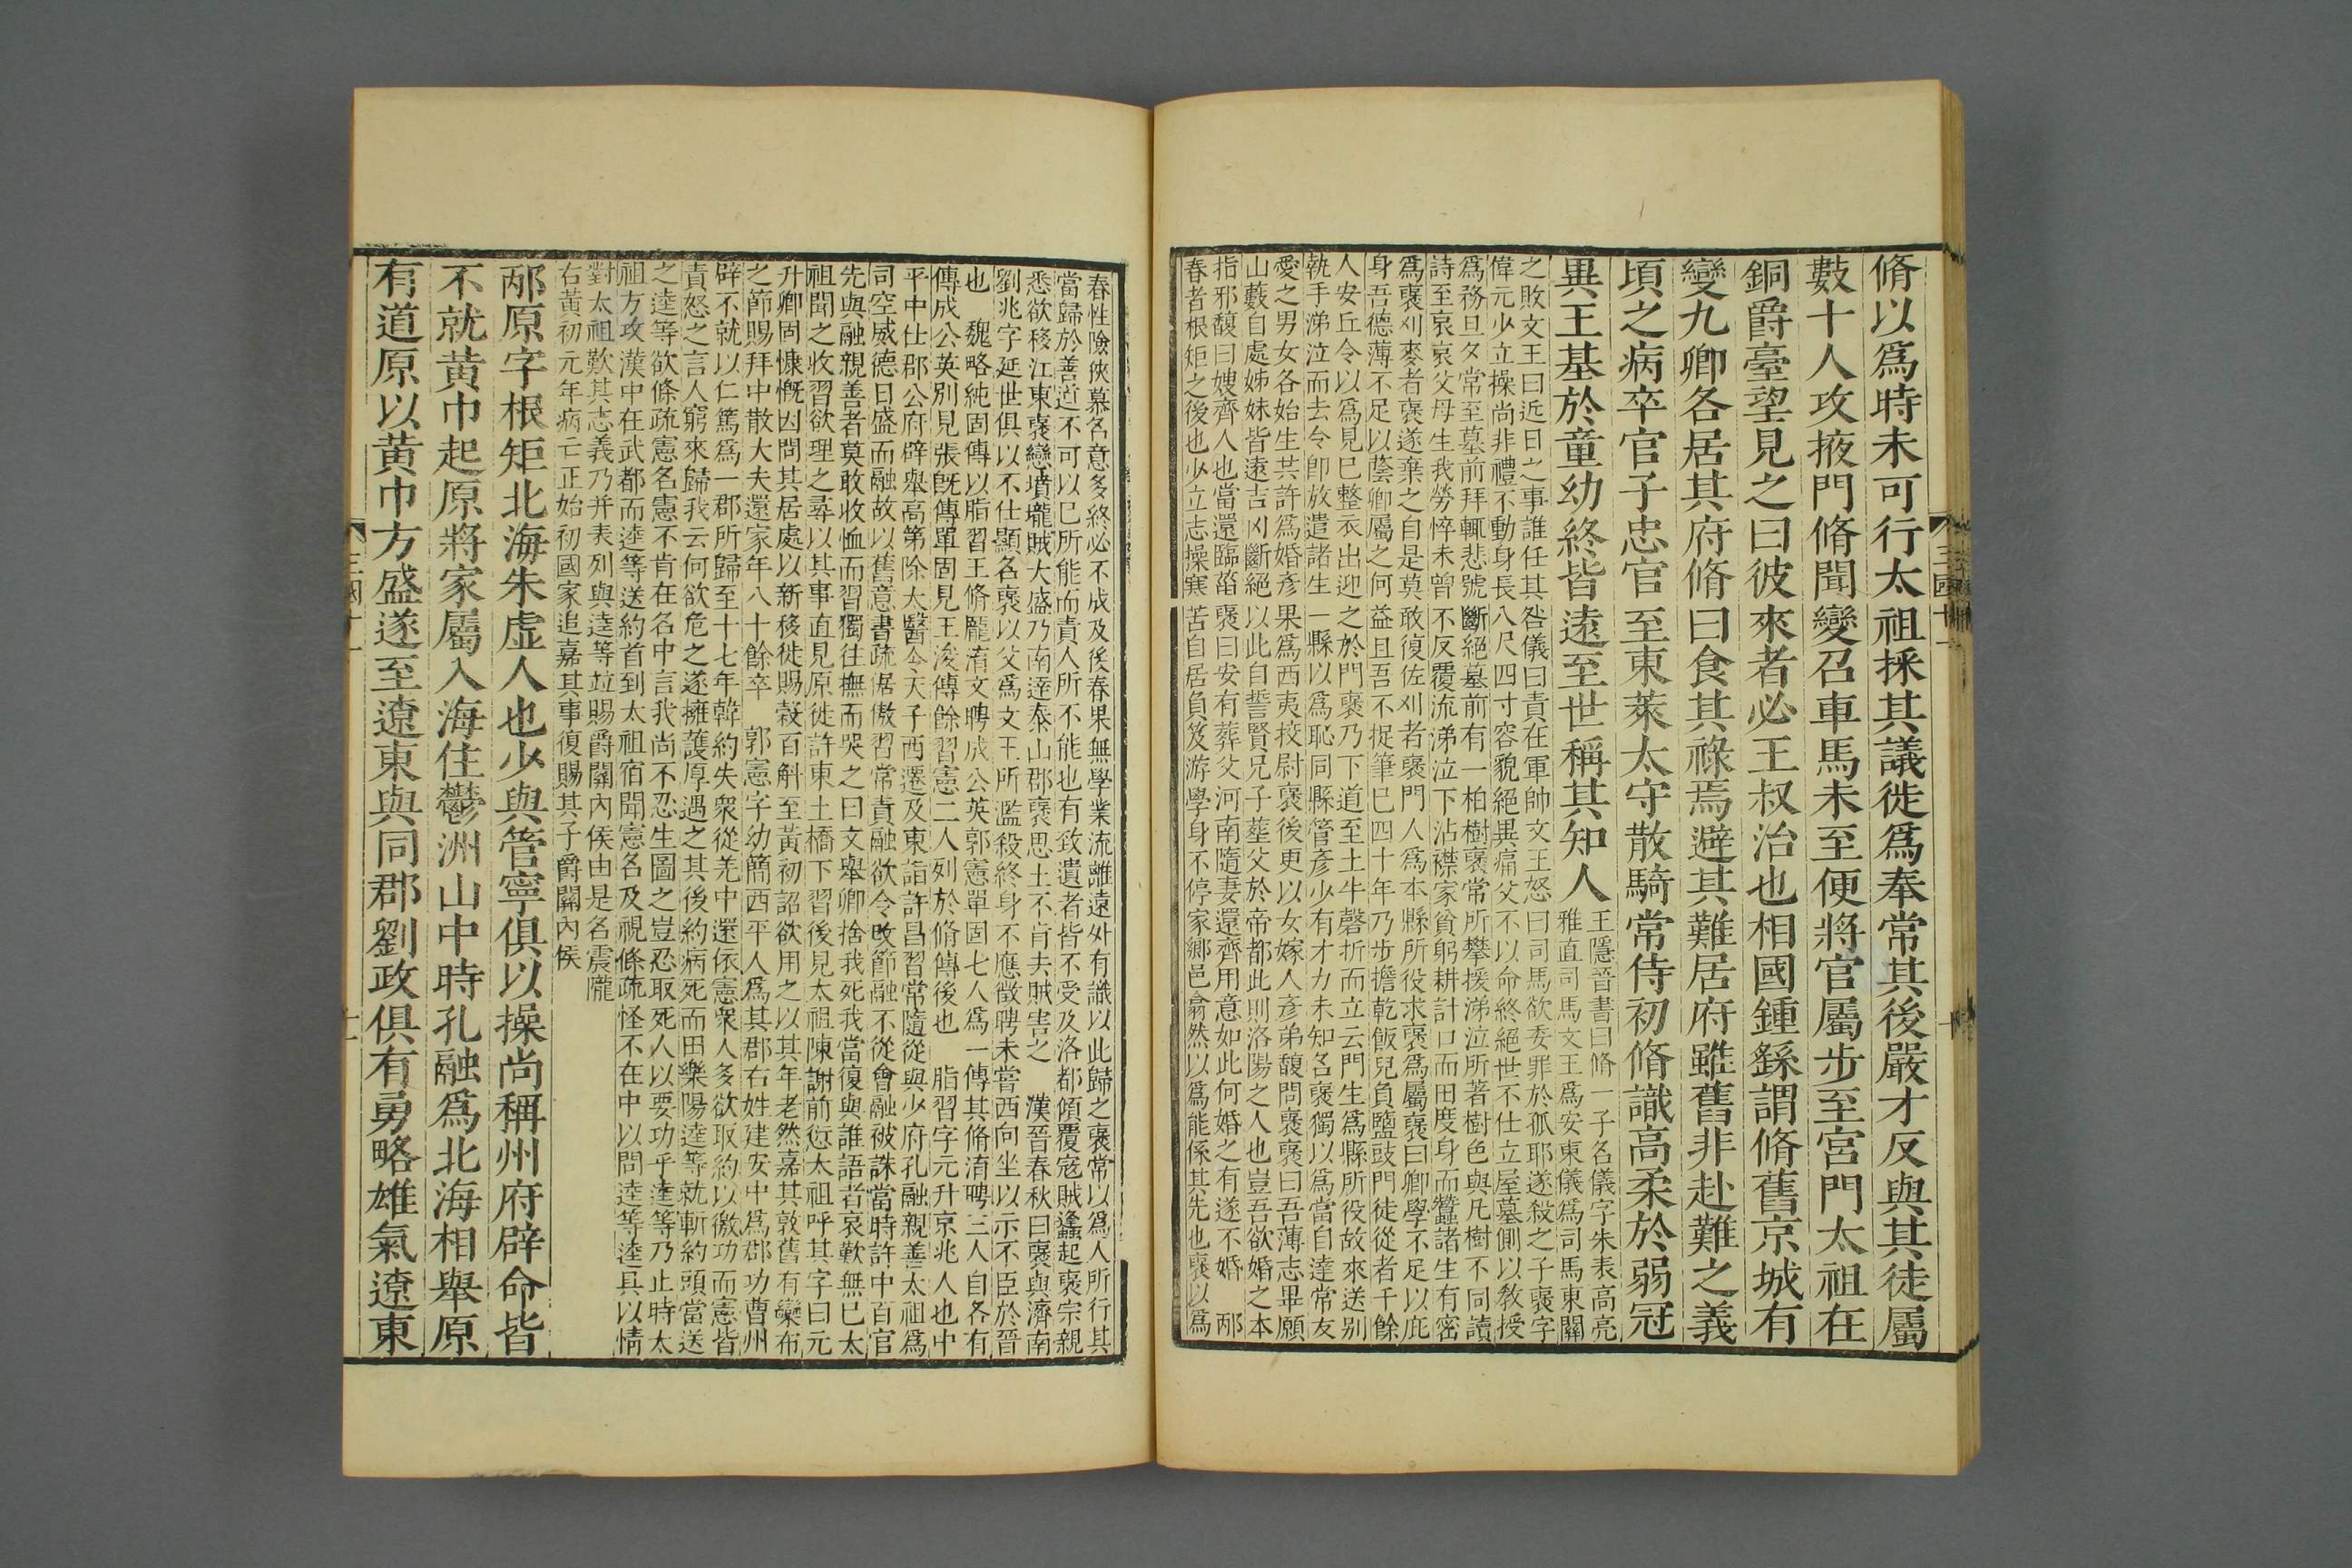 脩以爲時未可行太祖採其議徙爲奉常其後嚴才反與其徒屬
數十人攻掖門脩聞變召車馬未至便將官屬步至宮門太祖在
銅爵臺望見之曰彼來者必王叔治也相國鍾繇謂脩舊京城有
變九卿各居其府脩曰食其祿焉避其難居府雖舊非赴難之義
頃之病卒官子忠官至東萊太守散騎常侍初脩識高柔於弱冠
異王基於童幼終皆遠至世稱其知人
王隱晉書曰脩一子名儀字朱表高亮
雅直司馬文王爲安東儀爲司馬東關
之敗文王曰近日之事誰任其咎儀曰責在軍帥文王怒曰司馬欲委罪於孤耶遂殺之子褒字
偉元少立操尚非禮不動身長八尺四寸容貌絕異痛父不以命終絕世不仕立屋墓側以敎授
爲務旦夕常至墓前拜輒悲號斷絕墓前有一柏樹褒常所攀援涕泣所著樹色與凡樹不同讀
詩至哀哀父母生我勞悴未曾不反覆流涕泣下沾襟家貧躬耕計口而田度身而蠶諸生有密
爲褒刈麥者褒遂棄之自是莫敢復佐刈者褒門人爲本縣所役求褒爲屬褒曰卿學不足以庇
身吾德薄不足以蔭卿屬之何益且吾不捉筆已四十年乃步擔乾飯兒負鹽豉門徒從者千餘
人安丘令以爲見已整衣出迎之於門褒乃下道至土牛磬折而立云門生爲縣所役故來送别
執手涕泣而去令卽放遣諸生一縣以爲恥同縣管彥少有才力未知名褒獨以爲當自達常友
愛之男女各始生共許爲婚彥果爲西夷挍尉褒後更以女嫁人彥弟馥問褒褒曰吾薄志畢願
山藪自處姊妹皆遠吉凶斷絕以此自誓賢兄子葬父於帝都此則洛陽之人也豈吾欲婚之本
指邪馥曰嫂齊人也當還臨菑褒曰安有葬父河南隨妻還齊用意如此何婚之有遂不婚　邴
春者根矩之後也少立志操寒苦自居負笈游學身不停家鄉邑翕然以爲能係其先也褒以爲
春性險狹慕名意多終必不成及後春果無學業流離遠外有識以此歸之褒常以爲人所行其
當歸於善道不可以已所能而責人所不能也有致遺者皆不受及洛都傾覆寇賊蠭起褒宗親
悉欲移江東褒戀墳壠賊大盛乃南達泰山郡褒思土不肯去賊害之　漢晉春秋曰褒與濟南
劉兆字延世俱以不仕顯名褒以父爲文王所濫殺終身不應徵聘未嘗西向坐以示不臣於晉
也　魏略純固傳以脂習王脩龐淯文聘成公英郭憲單固七人爲一傳其脩淯聘三人自各有
傳成公英別見張旣傳單固見王淩傳餘習憲二人列於脩傳後也　脂習字元升京兆人也中
平中仕郡公府辟舉高第除大醫令天子西遷及東詣許昌習常隨從與少府孔融親善太祖爲
司空威德日盛而融故以舊意書疏倨傲習常責融欲令改節融不從會融被誅當時許中百官
先與融親善者莫敢收恤而習獨往撫而哭之曰文舉卿捨我死我當復與誰語者哀歎無已太
祖聞之收習欲理之尋以其事直見原徙許東土橋下習後見太祖陳謝前愆太祖呼其字曰元
升卿固慷慨因問其居處以新移徙賜穀百斛至黃初詔欲用之以其年老然嘉其敦舊有欒布
之節賜拜中散大夫還家年八十餘卒　郭憲字幼簡西平人爲其郡右姓建安中爲郡功曹州
辟不就以仁篤爲一郡所歸至十七年韓約失衆從羌中還依憲衆人多欲取約以徼功而憲皆
責怒之言人窮來歸我云何欲危之遂擁護厚遇之其後約病死而田樂陽逵等就斬約頭當送
之逵等欲條疏憲名憲不肯在名中言我尚不忍生圖之豈忍取死人以要功乎逵等乃止時太
祖方攻漢中在武都而逵等送約首到太祖宿聞憲名及視條疏怪不在中以問逵等逵具以情
對太祖歎其志義乃并表列與逵等竝賜爵關內侯由是名震隴
右黃初元年病亡正始初國家追嘉其事復賜其子爵關內侯
邴原字根矩北海朱虛人也少與管寧俱以操尚稱州府辟命皆
不就黃巾起原將家屬入海住鬱洲山中時孔融爲北海相舉原
有道原以黃巾方盛遂至遼東與同郡劉政俱有勇略雄氣遼東
三國十一